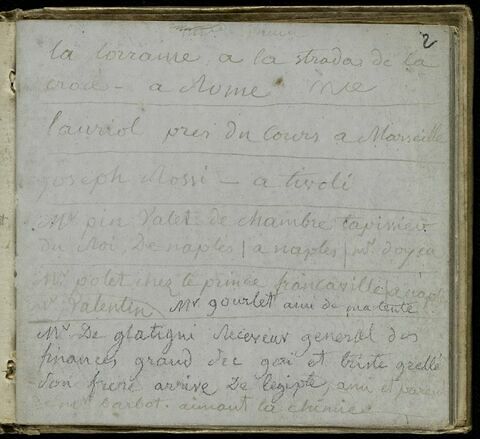 2
la lorraine a la strada de la
croce - a Rome
lauriol pres du Cours a Marseille
joseph Rossi - a tivoli
Mr pin Valet de chambre tapissier
du Roi De naples | a naples |
Mr polet chez le prince francaville a naple
Mr Valentin Mr gourlet ami de ma tente
Mr De glatigni Receveur general des
finances grand sec gai et triste grellé
son frere arrive De l'egipte, ami et
Mr barbot. aimant la chimie